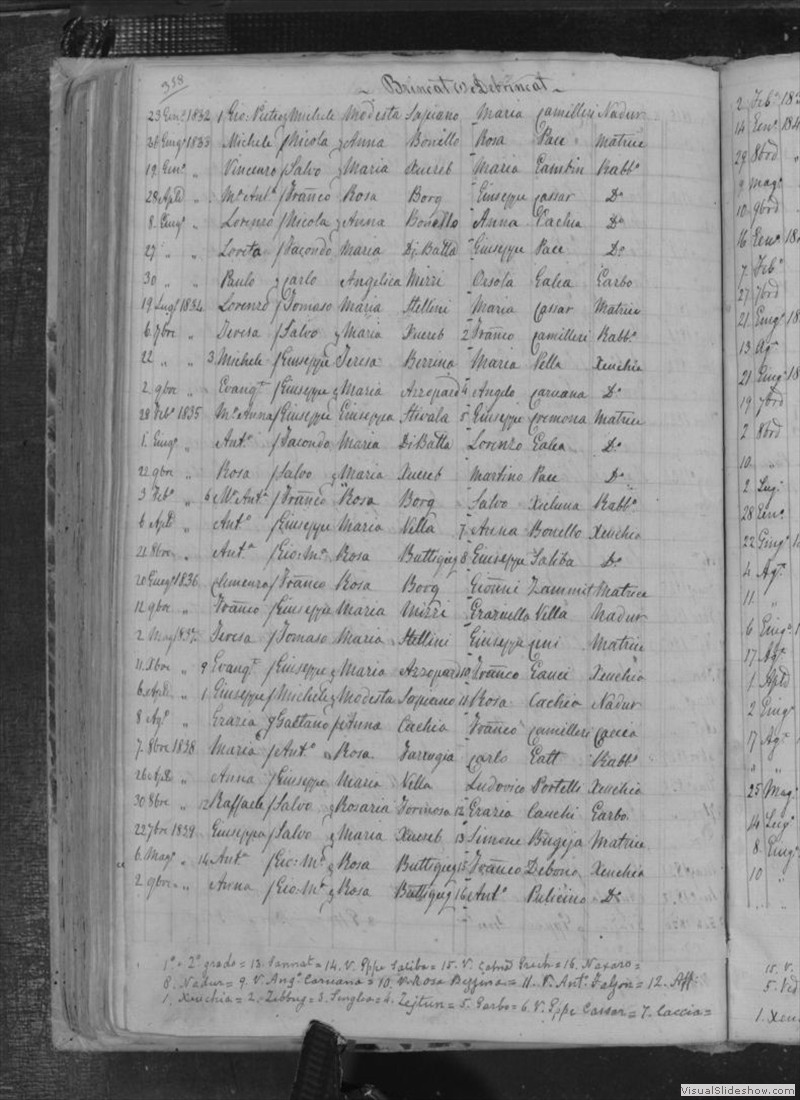 318
Brincat (s) e Debrincat
23 Gen.º 1832 1 Gio: Pietro / Michele Modesta Sapiano Maria Camilleri Nadur
28 Giug.º 1833 Michele / Nicola y Anna Bonello Rosa Pace Matrice
19 Gen.º " Vincenzo / Salvo y Maria Xuereb Maria Cambin Rabb.º
28 Aple " M.ª Ant.ª / Franco Rosa Borg Giuseppe Cassar Dº
8 Giug.º " Lorenzo / Nicola y Anna Bonello Anna Cachia Dº
27 " " Loreta / Facondo Maria Di Batta Giuseppe Pace Dº
30 " " Paulo y Carlo Angelica Mizzi Orsola Galea Garbo
19 Lugl 1834 Lorenzo / Tomaso Maria Stellini Maria Cassar Matrice
6 7bre " Teresa / Salvo y Maria Xuereb 2 Franco Camilleri Rabb.º
22 " " 3 Michele / Giuseppe Teresa Maria Vella Xeuchia
2 9bre " Evang.ta / Giuseppe y Maria Azzopard 4 Angelo Caruana Dº
28 Feb.º 1835 M.ª Anna / Giuseppe Giuseppa Stivala 5 Giuseppe Cremona Matrice
1 Giug.º " Ant.º / Facondo Maria Di Batta Lorenzo Galea Dº
22 9bre " Rosa / Salvo y Maria Xuereb Martino Pace Dº
3 Feb.º " 6 M.ª Ant.ª / Franco Rosa Borg Salvo Xicluna Rabb.º
6 Aple " Ant.º / Giuseppe Maria Vella 7 Anna Bonello Xeuchia
21 8bre " Ant.ª / Gio: M.ª Rosa Buttigieg 8 Giuseppe Saliba Dº
20 Giug.º 1836 Clemenza / Franco Rosa Borg Gionni Zammit Matrice
12 9bre " Franco / Giuseppe Maria Mizzi Graziella Vella Nadur
2 Mag 1837 Teresa / Tomaso Maria Stellini Giuseppe Matrice
11 Xbre " 9 Evang.ta / Giuseppe y Maria Azzopard 10 Franco Gauci Xeuchia
6 Aple " 1 Giuseppe / Michele y Modesta Sapiano 11 Rosa Cachia Nadur
8 Ag.º " Grazia y Gaetano / Anna Cachia Franco Camilleri Caccia
7 8bre 1838 Maria / Ant.º Rosa Farrugia Carlo Gatt Rabb.º
26 Aple " Anna / Giuseppe Maria Vella Ludovico Portelli Xeuchia
30 8bre " 12 Raffaele / Salvo y Rosaria Formosa 12 Grazia Cauchi Garbo
22 7bre 1839 Giuseppa / Salvo y Maria Xuereb 13 Simone Bugeja Matrice
6 Mag.º " 14 Ant.ª / Gio: M.ª y Rosa Buttigieg 15 Franco Debono Xeuchia
2 9bre " Anna / Gio: M.ª y Rosa Buttigieg 16 Ant.º Pulicino Dº
1º e 2º grado = 13. Sannat = 14. V. Gppe Saliba = 15. V. Grech = 16. Naxaro =
8. Nadur = 9. V. Ang.º Caruana = 10. V. Rosa = 11. V. Ant. Falzon = 12. Aff:
1. Xeuchia = 2. Zebbug = 3. Senglea = 4. Zejtun = 5. Garbo = 6. V. Gppe Cassar = 7. Caccia =
2 Feb.º 183
14 Gen.º 184
29 8bre "
9 mag.º
10 9bre
16 Gen.º 18
7 Feb.º
27 7bre
21 Giug.º 18
13 Ag.º
21 Giug.º 18
19 7bre
2 8bre
10 "
2 Lug.º
28 Gen.º
22 Giug.º 1
4 Ag.º
11 "
6 Giug.º 1
17 Ag.º
1 Aple
2 Giug.º
17 Ag.º 1
" "
25 Mag.º
14 Lug.º
8 Giug.º
10 "
15. V.
5. Ved
1. Xeu
VisualSlideshow.com